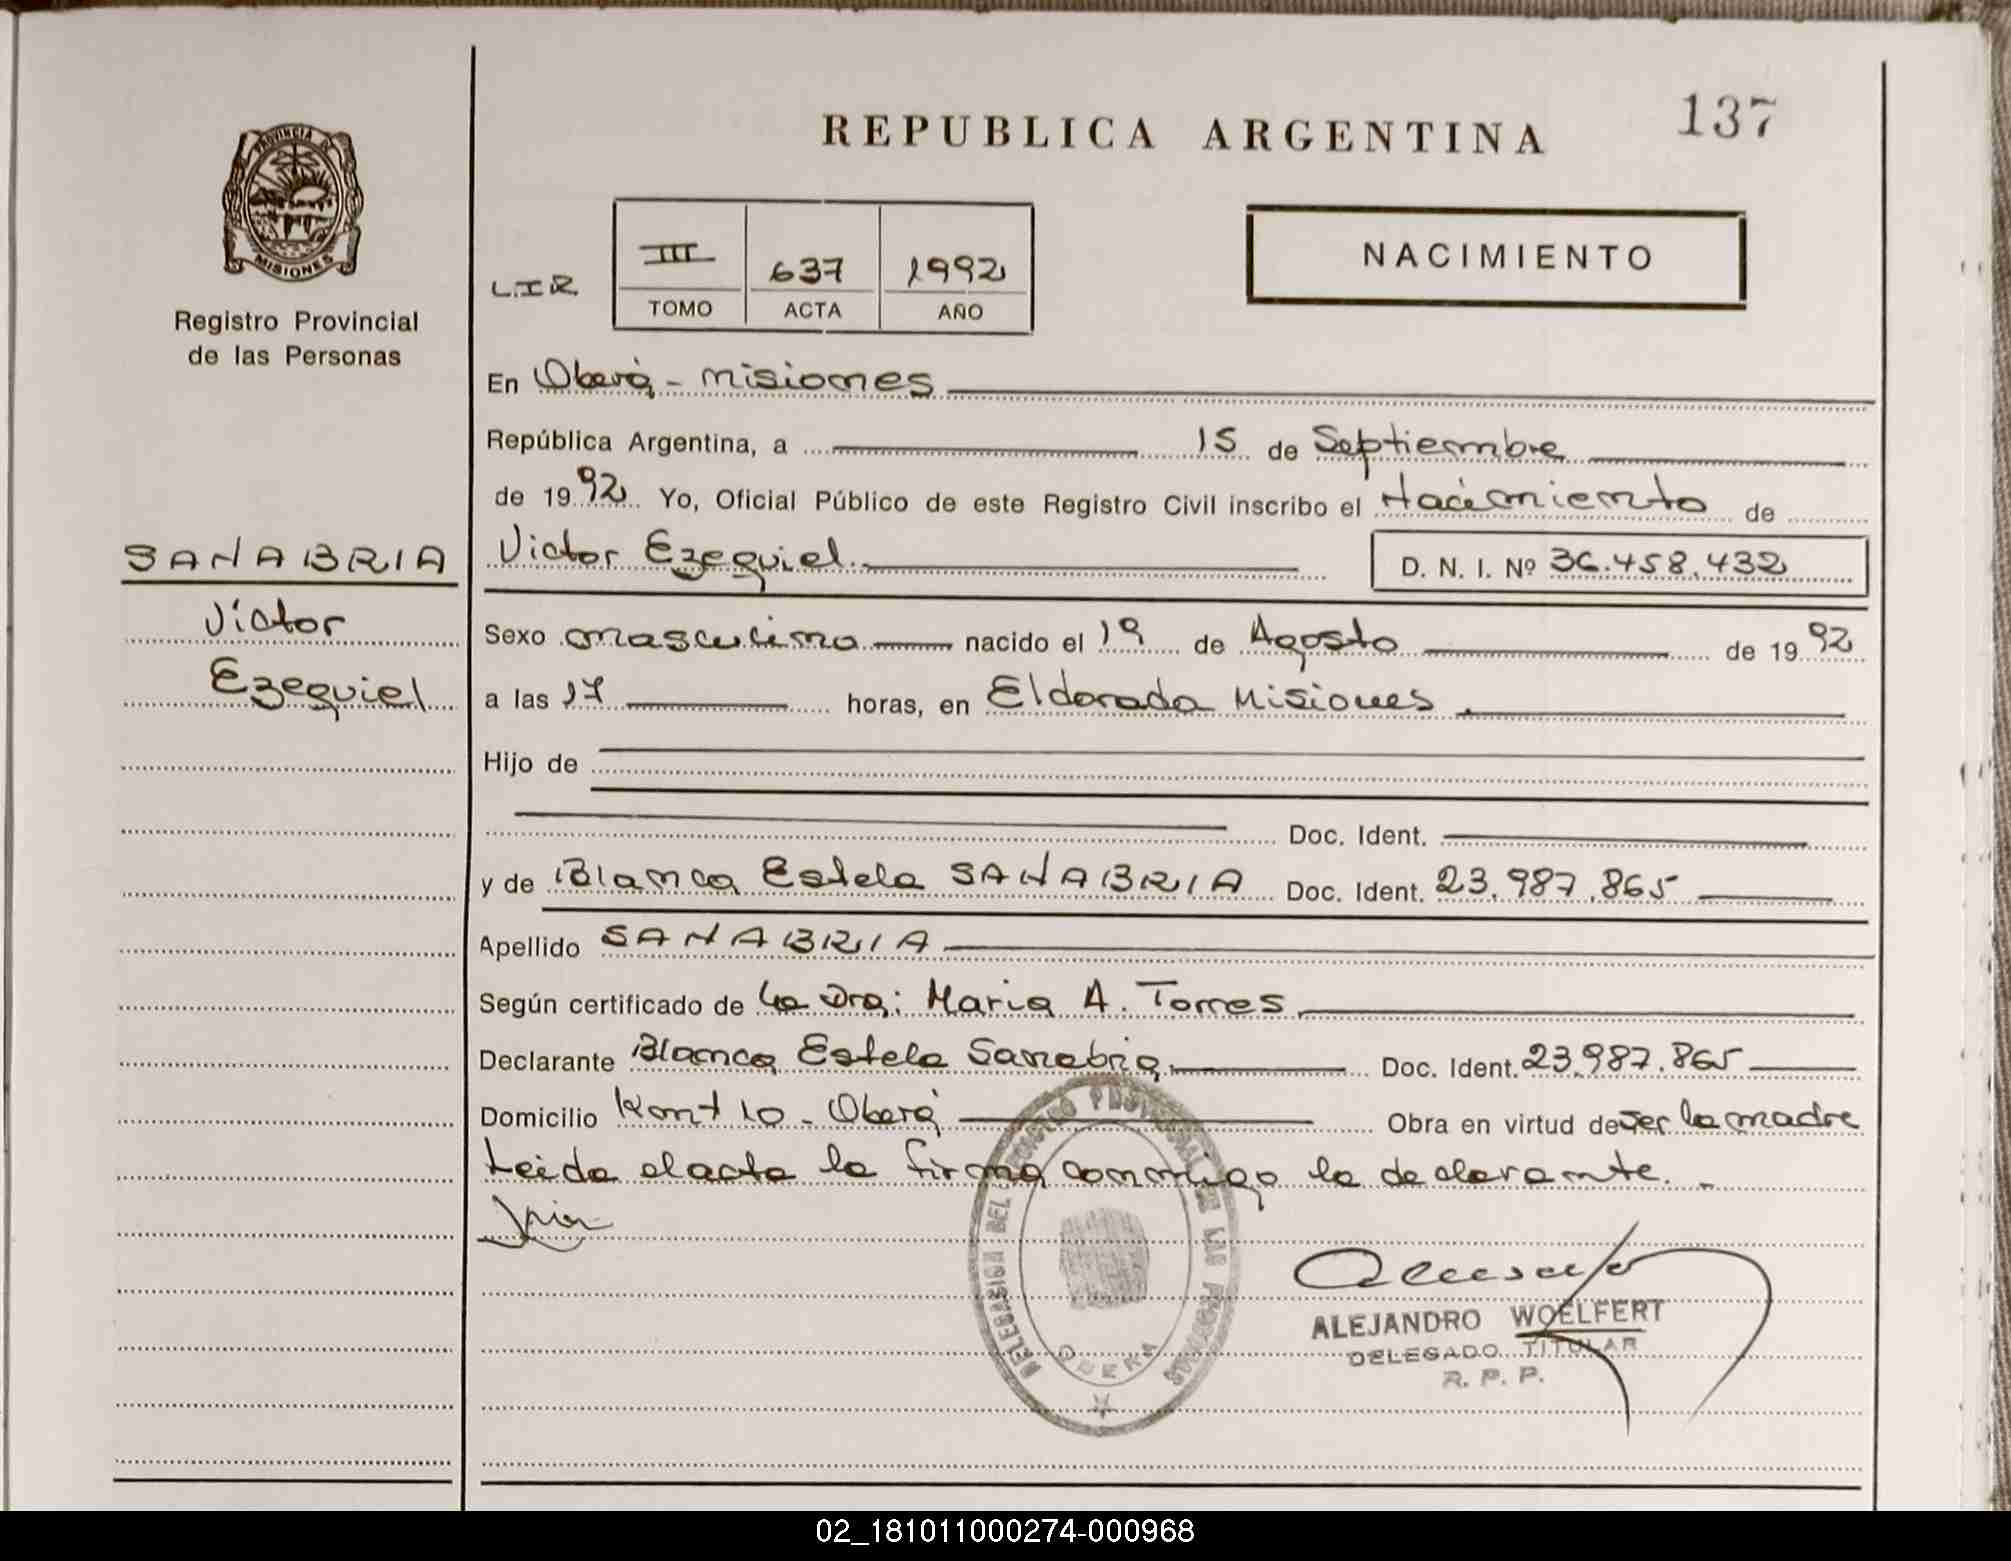 REPUBLICA ARGENTINA
137
PROVINCIA DE
MISIONES
Registro Provincial
de las Personas
L.I.R.
III 637 1992
TOMO ACTA AÑO
NACIMIENTO
En Oberá - Misiones
República Argentina, a 15 de Septiembre
de 1992 Yo, Oficial Público de este Registro Civil inscribo el Nacimiento de
Victor Ezequiel D. N. I. Nº 36.458.432
SANABRIA
Victor
Ezequiel
Sexo masculino nacido el 19 de Agosto de 1992
a las 17 horas, en Eldorado Misiones
Hijo de
Doc. Ident.
y de Blanca Estela SANABRIA Doc. Ident. 23.987.865
Apellido SANABRIA
Según certificado de La Dra: Maria A. Torres
Declarante Blanca Estela Sanabria Doc. Ident. 23.987.865
Domicilio Km 10 - Oberá Obra en virtud de ser la madre
Leida el acta la firma conmigo la declarante.
DELEGASION DEL REGISTRO PROVINCIAL DE LAS PERSONAS
OBERA
ALEJANDRO WOELFERT
DELEGADO TITULAR
R. P. P.
02_181011000274-000968